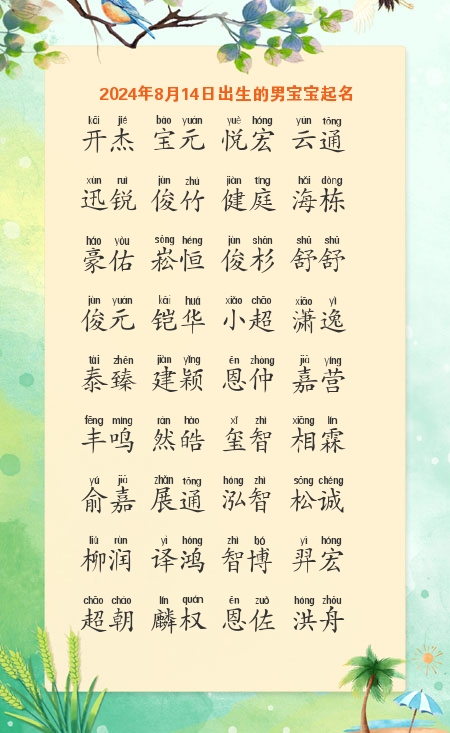 2024年8月14日出生的男宝宝起名
kāi jié bǎo yuán yuè hóng yún tōng
开杰 宝元 悦宏 云通
xùn ruì jùn zhú jiàn tíng hǎi dòng
迅锐 俊竹 健庭 海栋
háo yòu sōng héng jùn shān shū shū
豪佑 崧恒 俊杉 舒舒
jùn yuán kǎi huá xiǎo chāo xiāo yì
俊元 铠华 小超 潇逸
tài zhēn jiàn yǐng ēn zhòng jiā yíng
泰臻 建颖 恩仲 嘉营
fēng míng rán hào xǐ zhì xiāng lín
丰鸣 然皓 玺智 相霖
yú jiā zhǎn tōng hóng zhì sōng chéng
俞嘉 展通 泓智 松诚
liǔ rùn yì hóng zhì bó yì hóng
柳润 译鸿 智博 羿宏
chāo cháo lín quán ēn zuǒ hóng zhōu
超朝 麟权 恩佐 洪舟